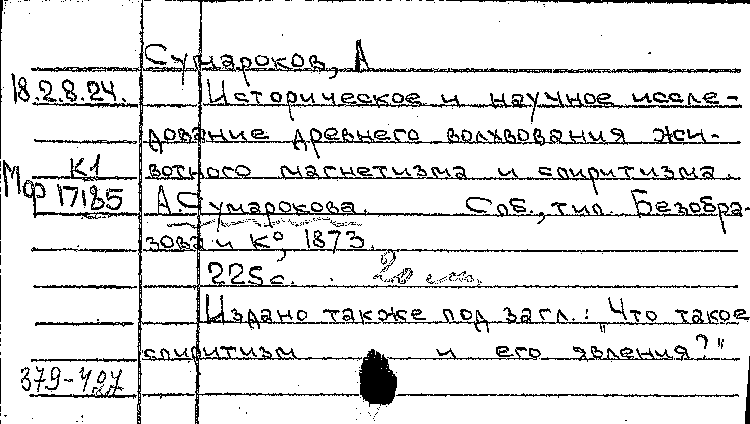 Сумароков, А
18.2.8.24. Историческое и научное иссле-
дование древнего волхвования жи-
К1 вотного магнетизма и спиритизма.
Мор 17185 А.Сумарокова. Спб., тип. Безобра-
зова и К°, 1873.
225с. 20 см.
Издано также под загл.: "Что такое
спиритизм и его явления?"
379-427